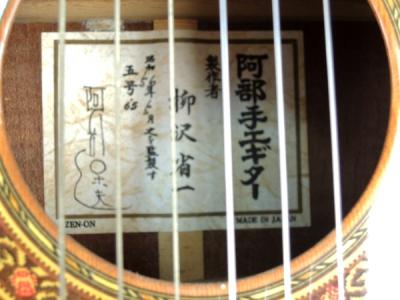 阿部手工ギター
製作者
柳沢省一
昭和56年6月之を監製す
五号65
ZEN-ON
MADE IN JAPAN